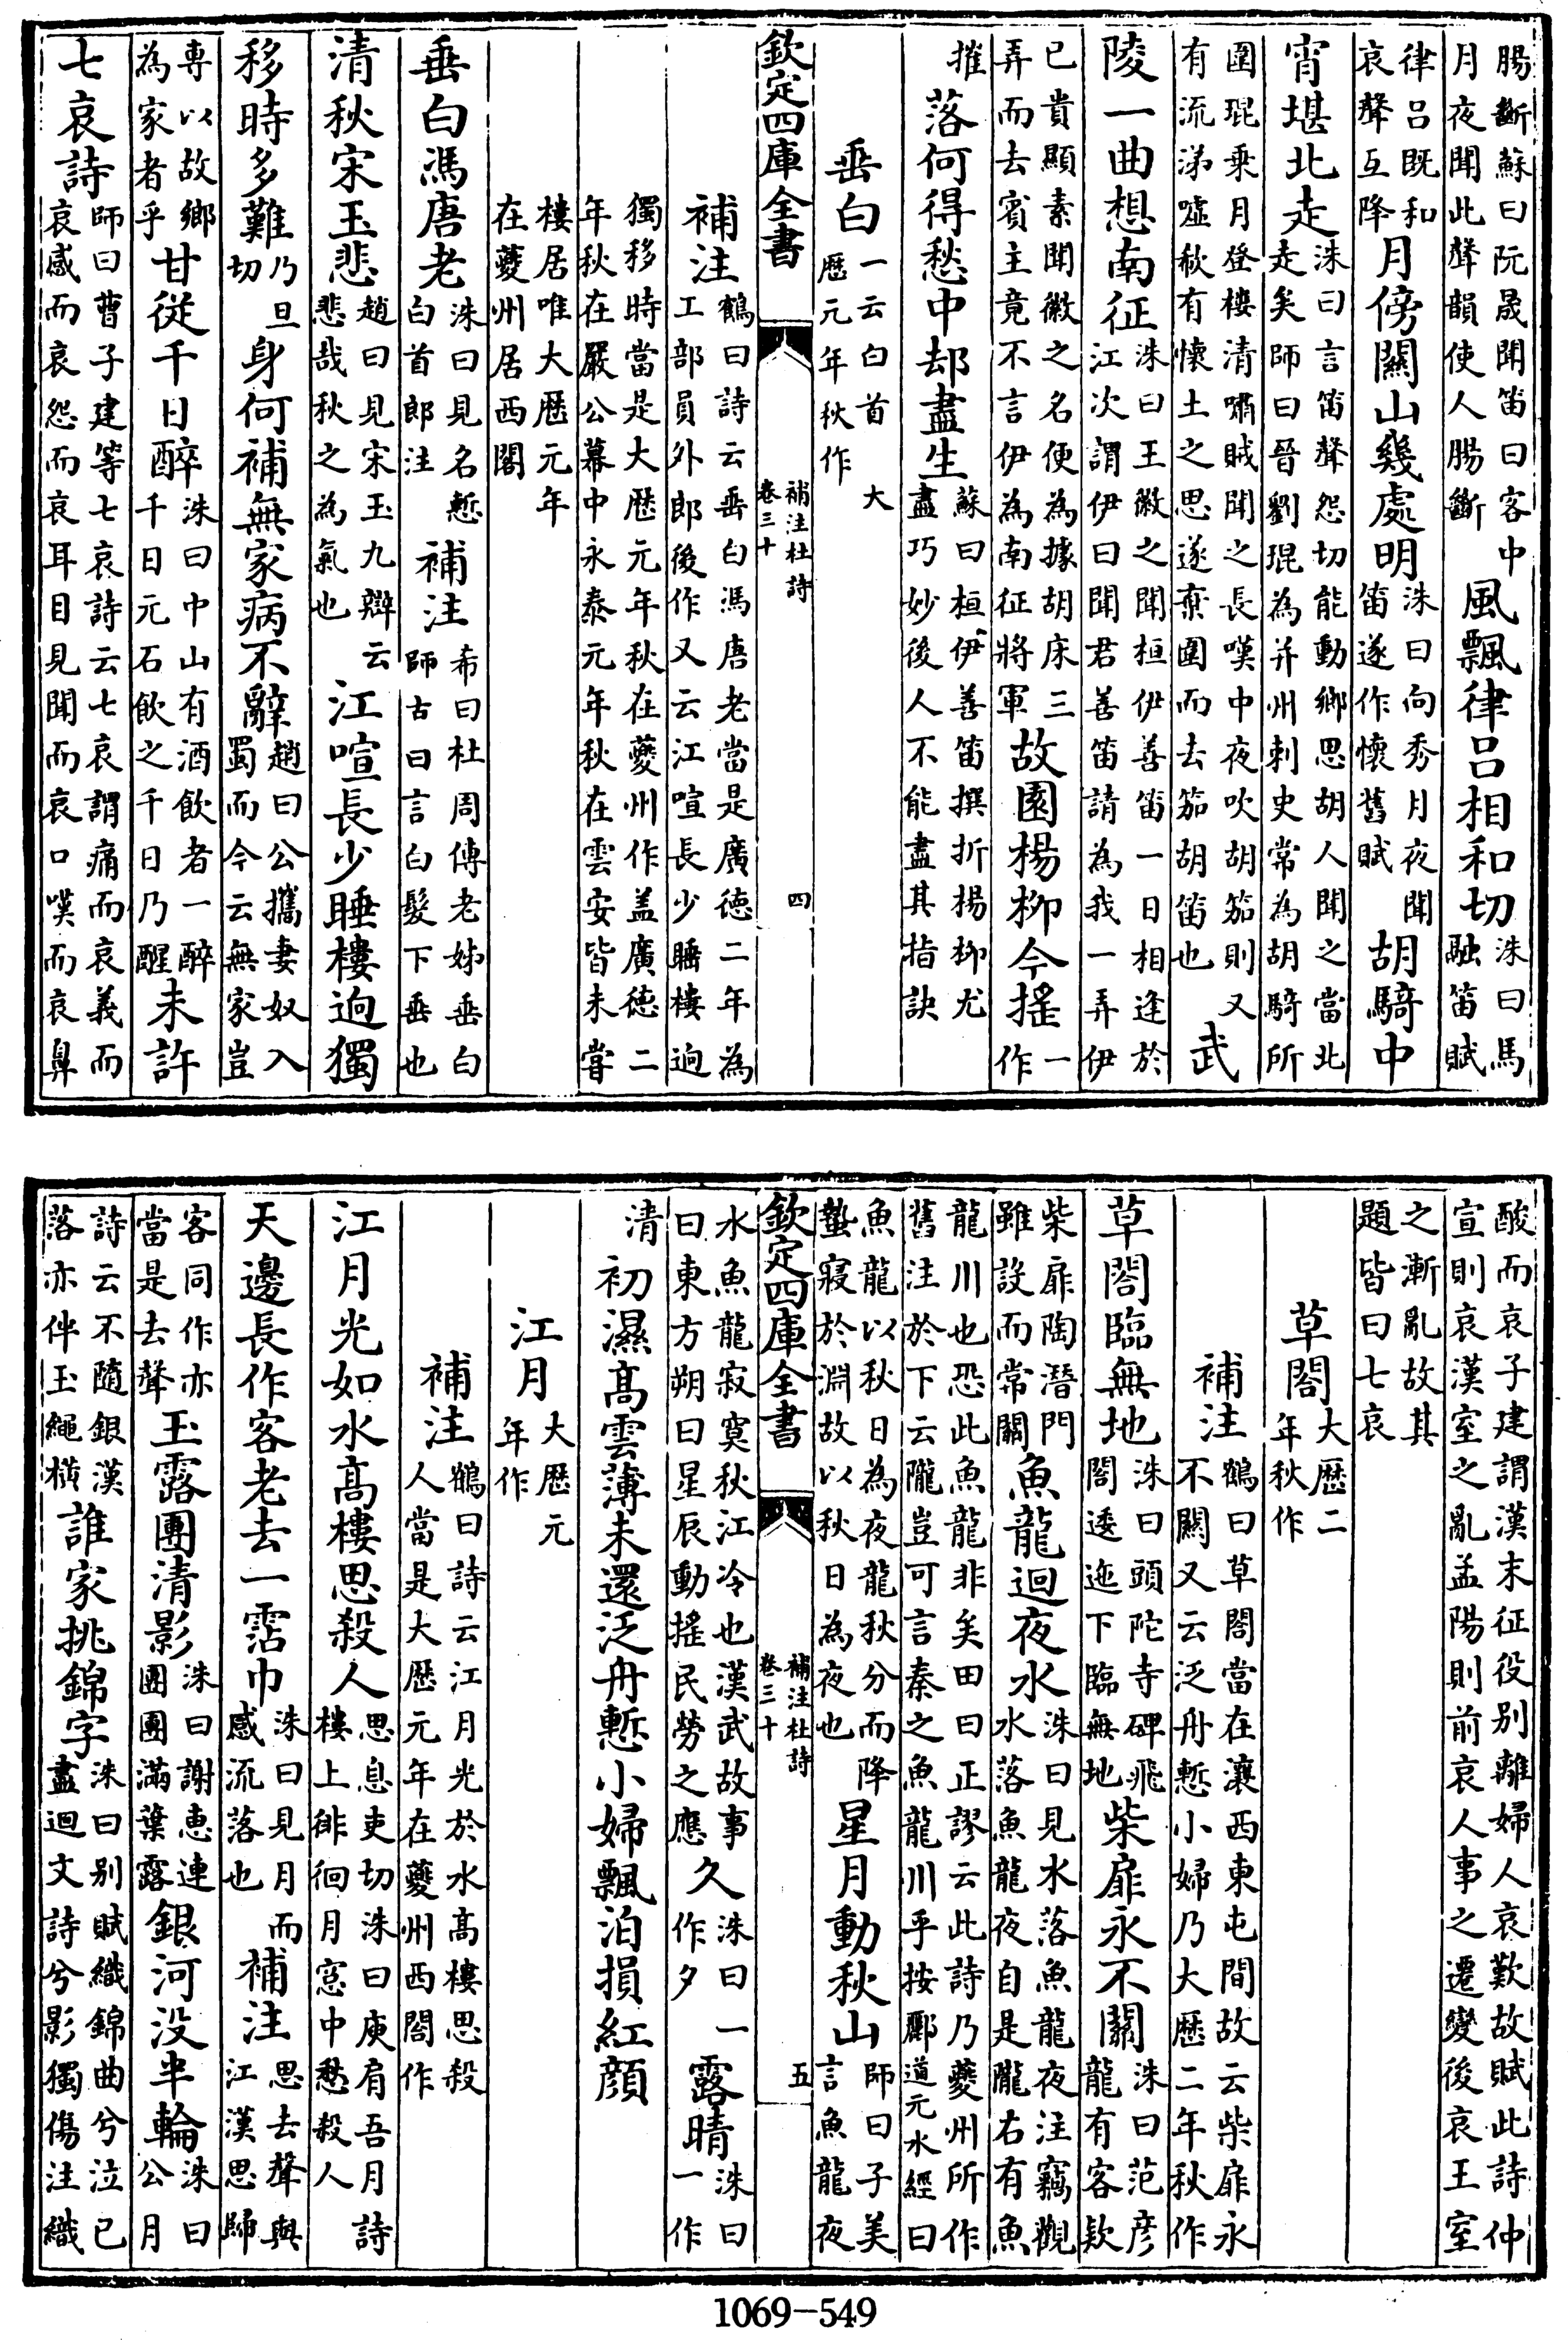 腸斷蘇曰阮晟聞笛曰客中月夜聞此聲韻使人腸斷風飄律呂相和切洙曰馬融笛賦
律呂既和哀聲互降月傍關山幾處明洙曰向秀月夜聞笛遂作懷舊賦胡騎中
宵堪北走洙曰言笛聲怨切能動鄉思胡人聞之當北走矣師曰晉劉琨為并州刺史常為胡騎所
圍琨乗月登樓清嘯賊聞之長嘆中夜吹胡笳則又有流涕嘘欷有懷土之思遂棄圍而去笳胡笛也武
陵一曲想南征洙曰王徽之聞桓伊善笛一日相逢於江次謂伊曰聞君善笛請為我一弄伊
已貴顯素聞徽之名便為據胡床三弄而去賓主竟不言伊為南征將軍故園楊柳今揺一作
摧落何得愁中却盡生蘇曰桓伊善笛撰折楊柳尤盡巧妙後人不能盡其指訣
垂白一云白首大歴元年秋作
欽定四庫全書
補注杜詩
卷三十
四
補注鶴曰詩云垂白馮唐老當是廣徳二年為工部員外郎後作又云江喧長少睡樓逈
獨移時當是大歴元年秋在夔州作盖廣徳二年秋在嚴公幕中永泰元年秋在雲安皆未嘗
樓居唯大歴元年在夔州居西閣
垂白馮唐老洙曰見名慙白首郎注補注希曰杜周傳老姊垂白師古曰言白髮下垂也
清秋宋玉悲趙曰見宋玉九辯云悲哉秋之為氣也江喧長少睡樓逈獨
移時多難乃旦切身何補無家病不辭趙曰公攜妻奴入蜀而今云無家豈
專以故鄉為家者乎甘從千日醉洙曰中山有酒飲者一醉千日元石飲之千日乃醒未許
七哀詩師曰曹子建等七哀詩云七哀謂痛而哀義而哀感而哀怨而哀耳目見聞而哀口嘆而哀鼻
酸而哀子建謂漢末征役别離婦人哀歎故賦此詩仲宣則哀漢室之亂孟陽則前哀人事之遷變後哀王室
之漸亂故其題皆曰七哀
草閣大歴二年秋作
補注鶴曰草閣當在瀼西東屯間故云柴扉永不闗又云泛舟慙小婦乃大歴二年秋作
草閣臨無地洙曰頭陀寺碑飛閣逶迤下臨無地柴扉永不關洙曰范彦龍有客欵
柴扉陶潛門雖設而常關魚龍迴夜水洙曰見水落魚龍夜注竊觀水落魚龍夜自是隴右有魚
龍川也恐此魚龍非矣田曰正謬云此詩乃夔州所作舊注於下云隴豈可言秦之魚龍川乎按酈道元水經曰
魚龍以秋日為夜龍秋分而降蟄寢於淵故以秋日為夜也星月動秋山師曰子美言魚龍夜
欽定四庫全書
補注杜詩
卷三十
五
水魚龍寂寞秋江冷也漢武故事曰東方朔曰星辰動揺民勞之應久洙曰一作夕露晴洙曰一作
清初濕髙雲薄未還泛舟慙小婦飄泊損紅顔
江月大歴元年作
補注鶴曰詩云江月光於水髙樓思殺人當是大歴元年在夔州西閣作
江月光如水髙樓思殺人思息吏切洙曰庾肩吾月詩樓上徘徊月窓中愁殺人
天邊長作客老去一霑巾洙曰見月而感流落也補注思去聲與江漢思歸
客同作亦當是去聲玉露團清影洙曰謝恵連團團滿葉露銀河没半輪洙曰公月
詩云不隨銀漢落亦伴玉繩橫誰家挑錦字洙曰别賦織錦曲兮泣已盡迴文詩兮影獨傷注織
1069-549